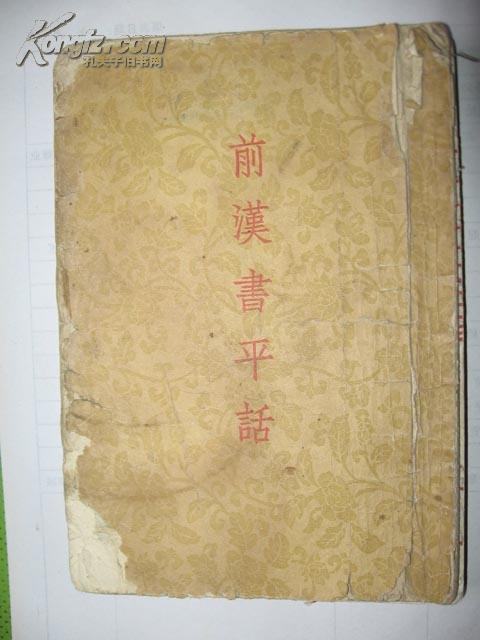 Kongfz.com
孔夫子旧书网
前漢書平話